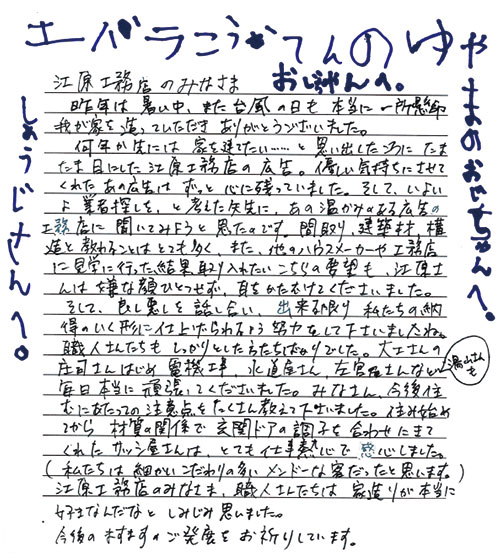 エバラこうむてんのゆやまのおじちゃんへ。
おじちゃんへ。
しょうじさんへ。
江原工務店のみなさま
昨年は暑い中、また台風の日も本当に一所懸命
我が家を造っていただきありがとうございました。
何年か先には家を建てたい……と思い出したころにたま
たま目にした江原工務店の広告。優しい気持ちにさせて
くれたあの広告はずっと心に残っていました。そして、いよい
よ業者探しを、と考えた矢先に、あの温かみのある広告の
工務店に聞いてみようと思ったのです。間取り、建築材、構
造と教わることはとても多く、また、他のハウスメーカーや工務店
に見学に行った結果取り入れたいこちらの要望も、江原さ
んは嫌な顔ひとつせず、耳をかたむけてくださいました。
そして、良し悪しを話し合い、出来る限り私たちの納
得のいく形に仕上げられるよう努力をして下さいましたね。
職人さんたちもしっかりとした方たちばかりでした。大工さんの
庄司さんはじめ電機工事、水道屋さん、左官屋さんなど
湯山さんも
毎日本当に頑張ってくださいました。みなさん、今後住
むにあたっての注意点をたくさん教えて下さいました。住み始め
てから材質の関係で玄関ドアの調子を合わせにきて
くれたサッシ屋さんは、とても仕事熱心で感心しました。
(私たちは細かいこだわりの多いメンドーな客だったと思います。)
江原工務店のみなさま、職人さんたちは家造りが本当に
好きなんだなとしみじみ思いました。
今後のますますのご発展をお祈りしています。